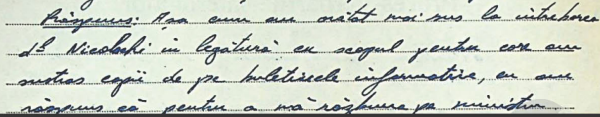 Răspuns: Așa cum am arătat mai sus la întrebarea
dlʳ Nicolschi în legătură cu scopul pentru care am
sustras copii de pe buletinele informative, eu am
răspuns că pentru a mă răzbuna pe ministru